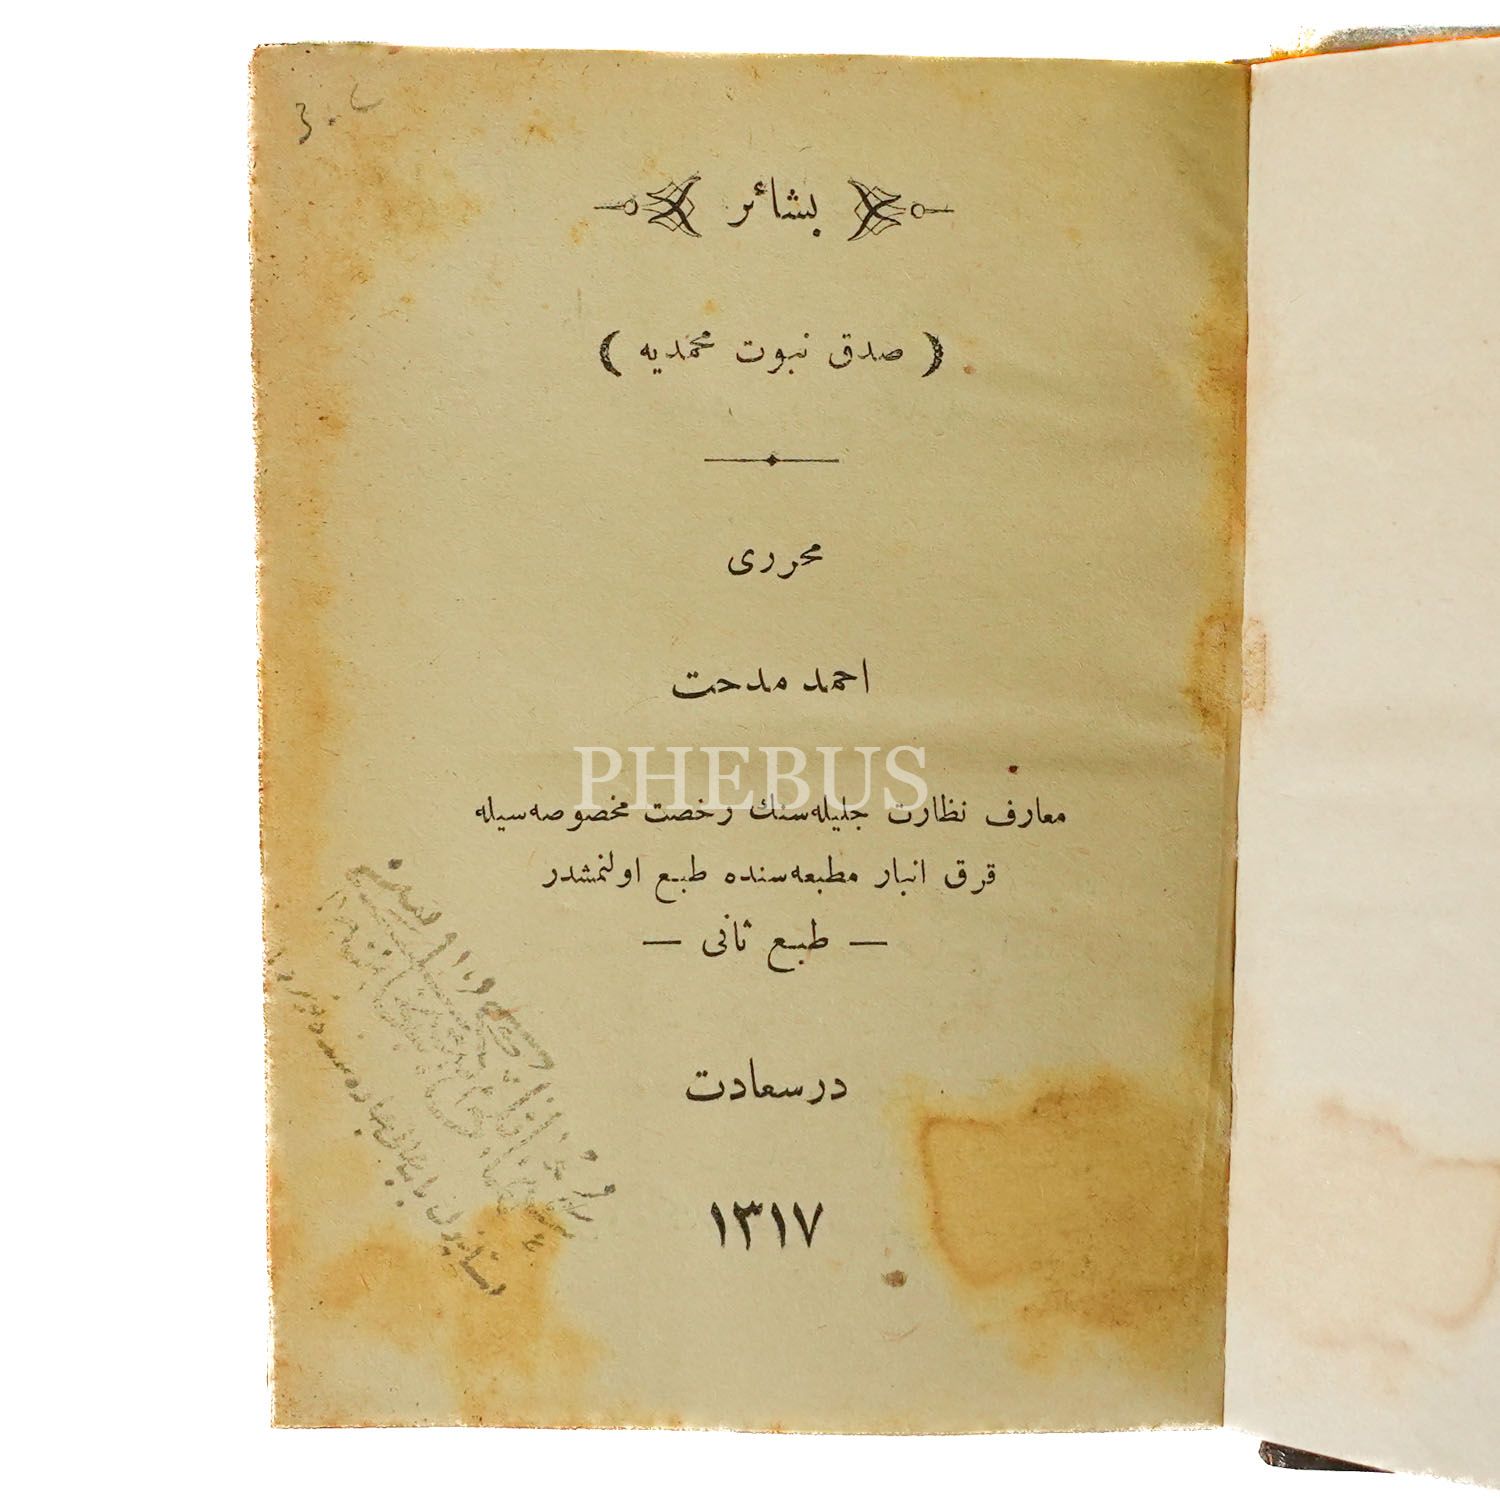 بشائر
( صدق نبوت محمدیه )
محرری
احمد مدحت
PHEBUS
معارف نظارت جلیله‌سنك رخصت مخصوصه‌سیله
قرق انبار مطبعه‌سنده طبع اولنمشدر
— طبع ثانی —
درسعادت
۱۳۱۷